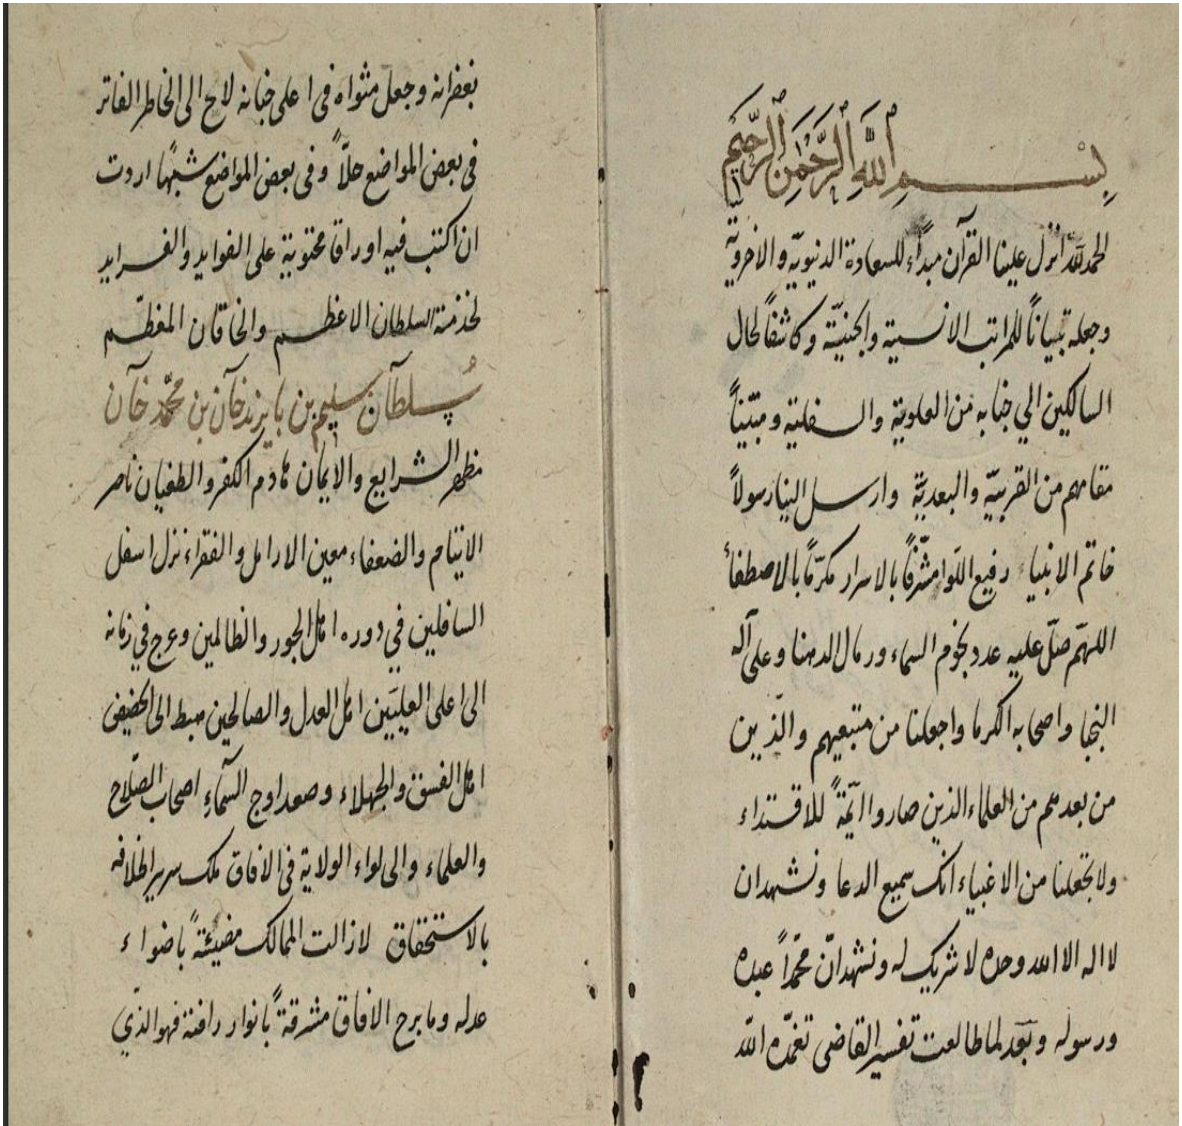 بسم الله الرحمن الرحيم
الحمد لله انزل علينا القرآن مبداء للسعادة الدنيويّة والاخرويّة
وجعله تبياناً للمراتب الانسية والجنيّة وكاشفاً لحال
السالكين الي جنابه من العلوية والسفلية ومبيّناً
مقامهم من القربيّة والبعديّة وارسل الينا رسولاً
خاتم الانبياء رفيع اللوا مشرّفاً بالاسرار مكرّماً بالاصطفأ
اللهمّ صلّ عليه عدد نجوم السماء ورمال الدهنا وعلى آله
النجبا واصحابه الكرما واجعلنا من متبعيهم والذّين
من بعدهم من العلماء الذين صاروا ايّمةً للاقتداء
ولا تجعلنا من الاغبياء انك سميع الدعا ونشهد ان
لا اله الا الله وحده لا شريك له ونشهد انّ محمّداً عبده
ورسوله وبعد لما طالعت تفسير القاضى تغمّده الله
بغفرانه وجعل مثواه فى اعلى جنانه لاح الى الخاطر الفاتر
فى بعض المواضع حلاً وفى بعض المواضع شبهًا اردت
ان اكتب فيه اوراقا محتوية على الفوايد والفرايد
لخدمة السلطان الاعظم والخاقان المعظّم
سُلطان سليم بن بايزيد خان بن محمّد خان
مظهر الشرايع والايمان هادم الكفر والطغيان ناصر
الايتام والضعفاء معين الارامل والفقراء نزل اسفل
السافلين في دوره اهل الجور والظالمين وعرج في زمانه
الى اعلى العليّين اهل العدل والصالحين هبط الى الحضيض
اهل الفسق والجهلاء وصعد اوج السّماءِ اصحاب الصّلاح
والعلماء والى لواء الولاية فى الافاق ملك سرير الخلافه
بالاستحقاق لازالت الممالك مضيئةً باضواء
عدله وما برح الافاق مشرقةً بانوار رافته فهو الذّي